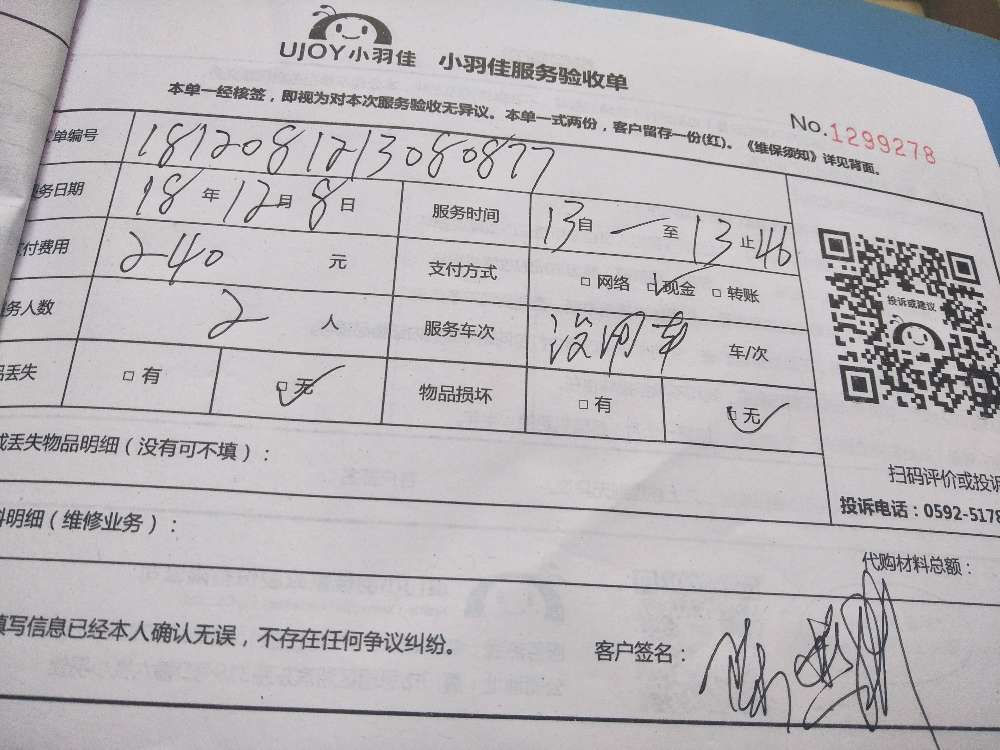 UJOY小羽佳 小羽佳服务验收单
本单一经核签，即视为对本次服务验收无异议。本单一式两份，客户留存一份(红)。《维保须知》详见背面。
No.1299278
单编号 181208121308087７
务日期 18年12月8日 服务时间 13自 至13止46
付费用 240元 支付方式 □网络 □现金 □转账
务人数 2人 服务车次 没用车 车/次
丢失 □有 □无 物品损坏 □有 □无
投诉或建议
扫码评价或投诉
投诉电话：0592-5178
或丢失物品明细（没有可不填）：
料明细（维修业务）：
代购材料总额：
填写信息已经本人确认无误，不存在任何争议纠纷。
客户签名：